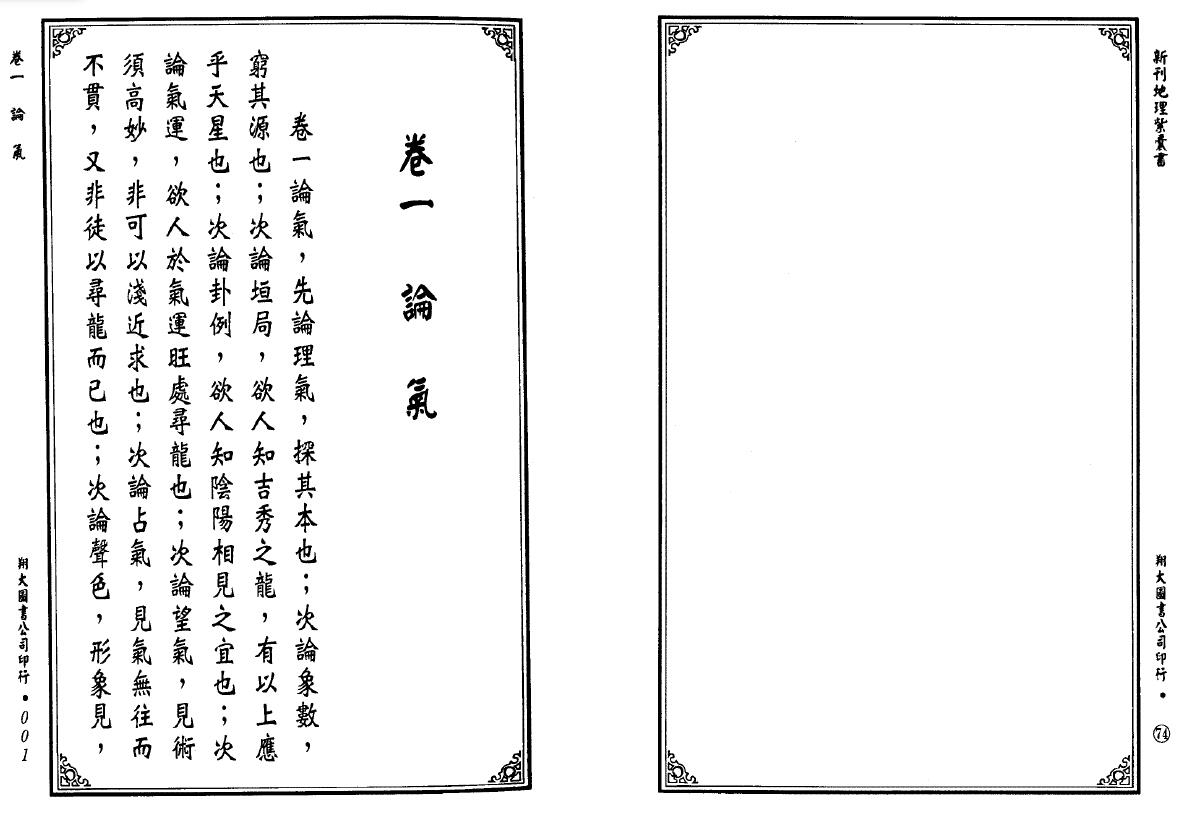 新刊地理紫囊書
翔大圖書公司印行 • 74
卷一 論 氣
卷一論氣，先論理氣，探其本也；次論象數，
窮其源也；次論垣局，欲人知吉秀之龍，有以上應
乎天星也；次論卦例，欲人知陰陽相見之宜也；次
論氣運，欲人於氣運旺處尋龍也；次論望氣，見術
須高妙，非可以淺近求也；次論占氣，見氣無往而
不貫，又非徒以尋龍而已也；次論聲色，形象見，
卷一 論 氣
翔大圖書公司印行 • 001